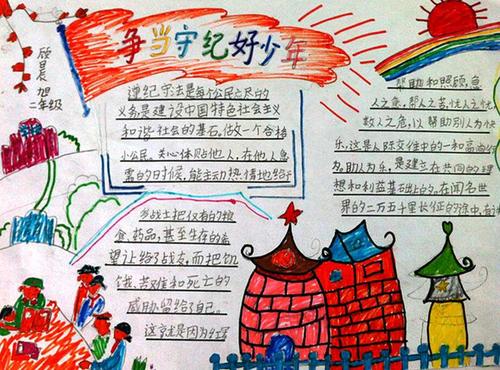 争当守纪好少年
欣晨旭
二年级
遵纪守法是每个公民应尽的
义务是建设中国特色社会主义
和谐社会的基石,做一个合格
小公民。关心体贴他人,在他人急
需的时候,能主动热情地给予
帮助和照顾,急
人之危,帮人之苦,忧人之忧
救人之危,以帮助别人为快
乐,这是人际交往中的一和高尚
为。助人为乐,是建立在共同的理
想和利益基础上的。在闻名世
界的二万五千里长征的途中,
多战士把仅有的粮
食、药品,甚至生存的希
望让给了战友,而把饥
饿、苦难和死亡的
威胁留给了自己。
这就是因为红军